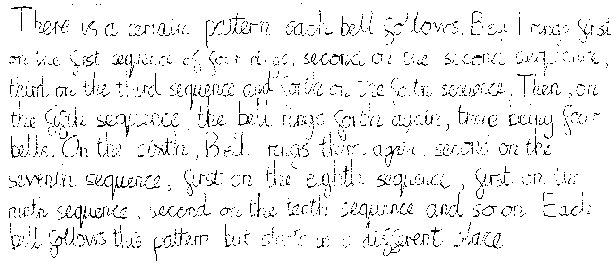 There is a certain pattern each bell follows. Bell 1 rings first
on the first sequence of four rings, second on the second sequence,
third on the third sequence and forth on the forth sequence. Then, on
the fifth sequence, the bell rings forth again, there being four
bells. On the sixth, Bell rings third again, second on the
seventh sequence, first on the eighth sequence, first on the
ninth sequence, second on the tenth sequence and so on. Each
bell follows this pattern but starts in a different place